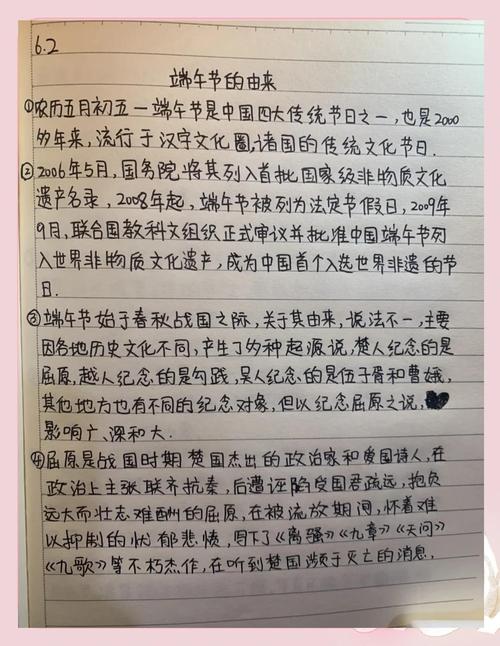 6.2
端午节的由来
①农历五月初五一端午节是中国四大传统节日之一,也是2000
多年来,流行于汉字文化圈诸国的传统文化节日.
②2006年5月,国务院将其列入首批国家级非物质文化
遗产名录,2008年起,端午节被列为法定节假日,2009年
9月,联合国教科文组织正式审议并批准中国端午节列
入世界非物质文化遗产,成为中国首个入选世界非遗的节
日.
③端午节始于春秋战国之际,关于其由来,说法不一,主要
因各地历史文化不同,产生了多种起源说,楚人纪念的是
屈原,越人纪念的是勾践,吴人纪念的是伍子胥和曹娥,
其他地方也有不同的纪念对象,但以纪念屈原之说,
影响广、深和大.
④屈原是战国时期楚国杰出的政治家和爱国诗人,在
政治上主张联齐抗秦,后遭诬陷受国君疏远,抱负
远大而壮志难酬的屈原,在被流放期间,怀着难
以抑制的忧郁悲愤,写下了《离骚》《九章》《天问》
《九歌》等不朽杰作,在听到楚国濒于灭亡的消息.